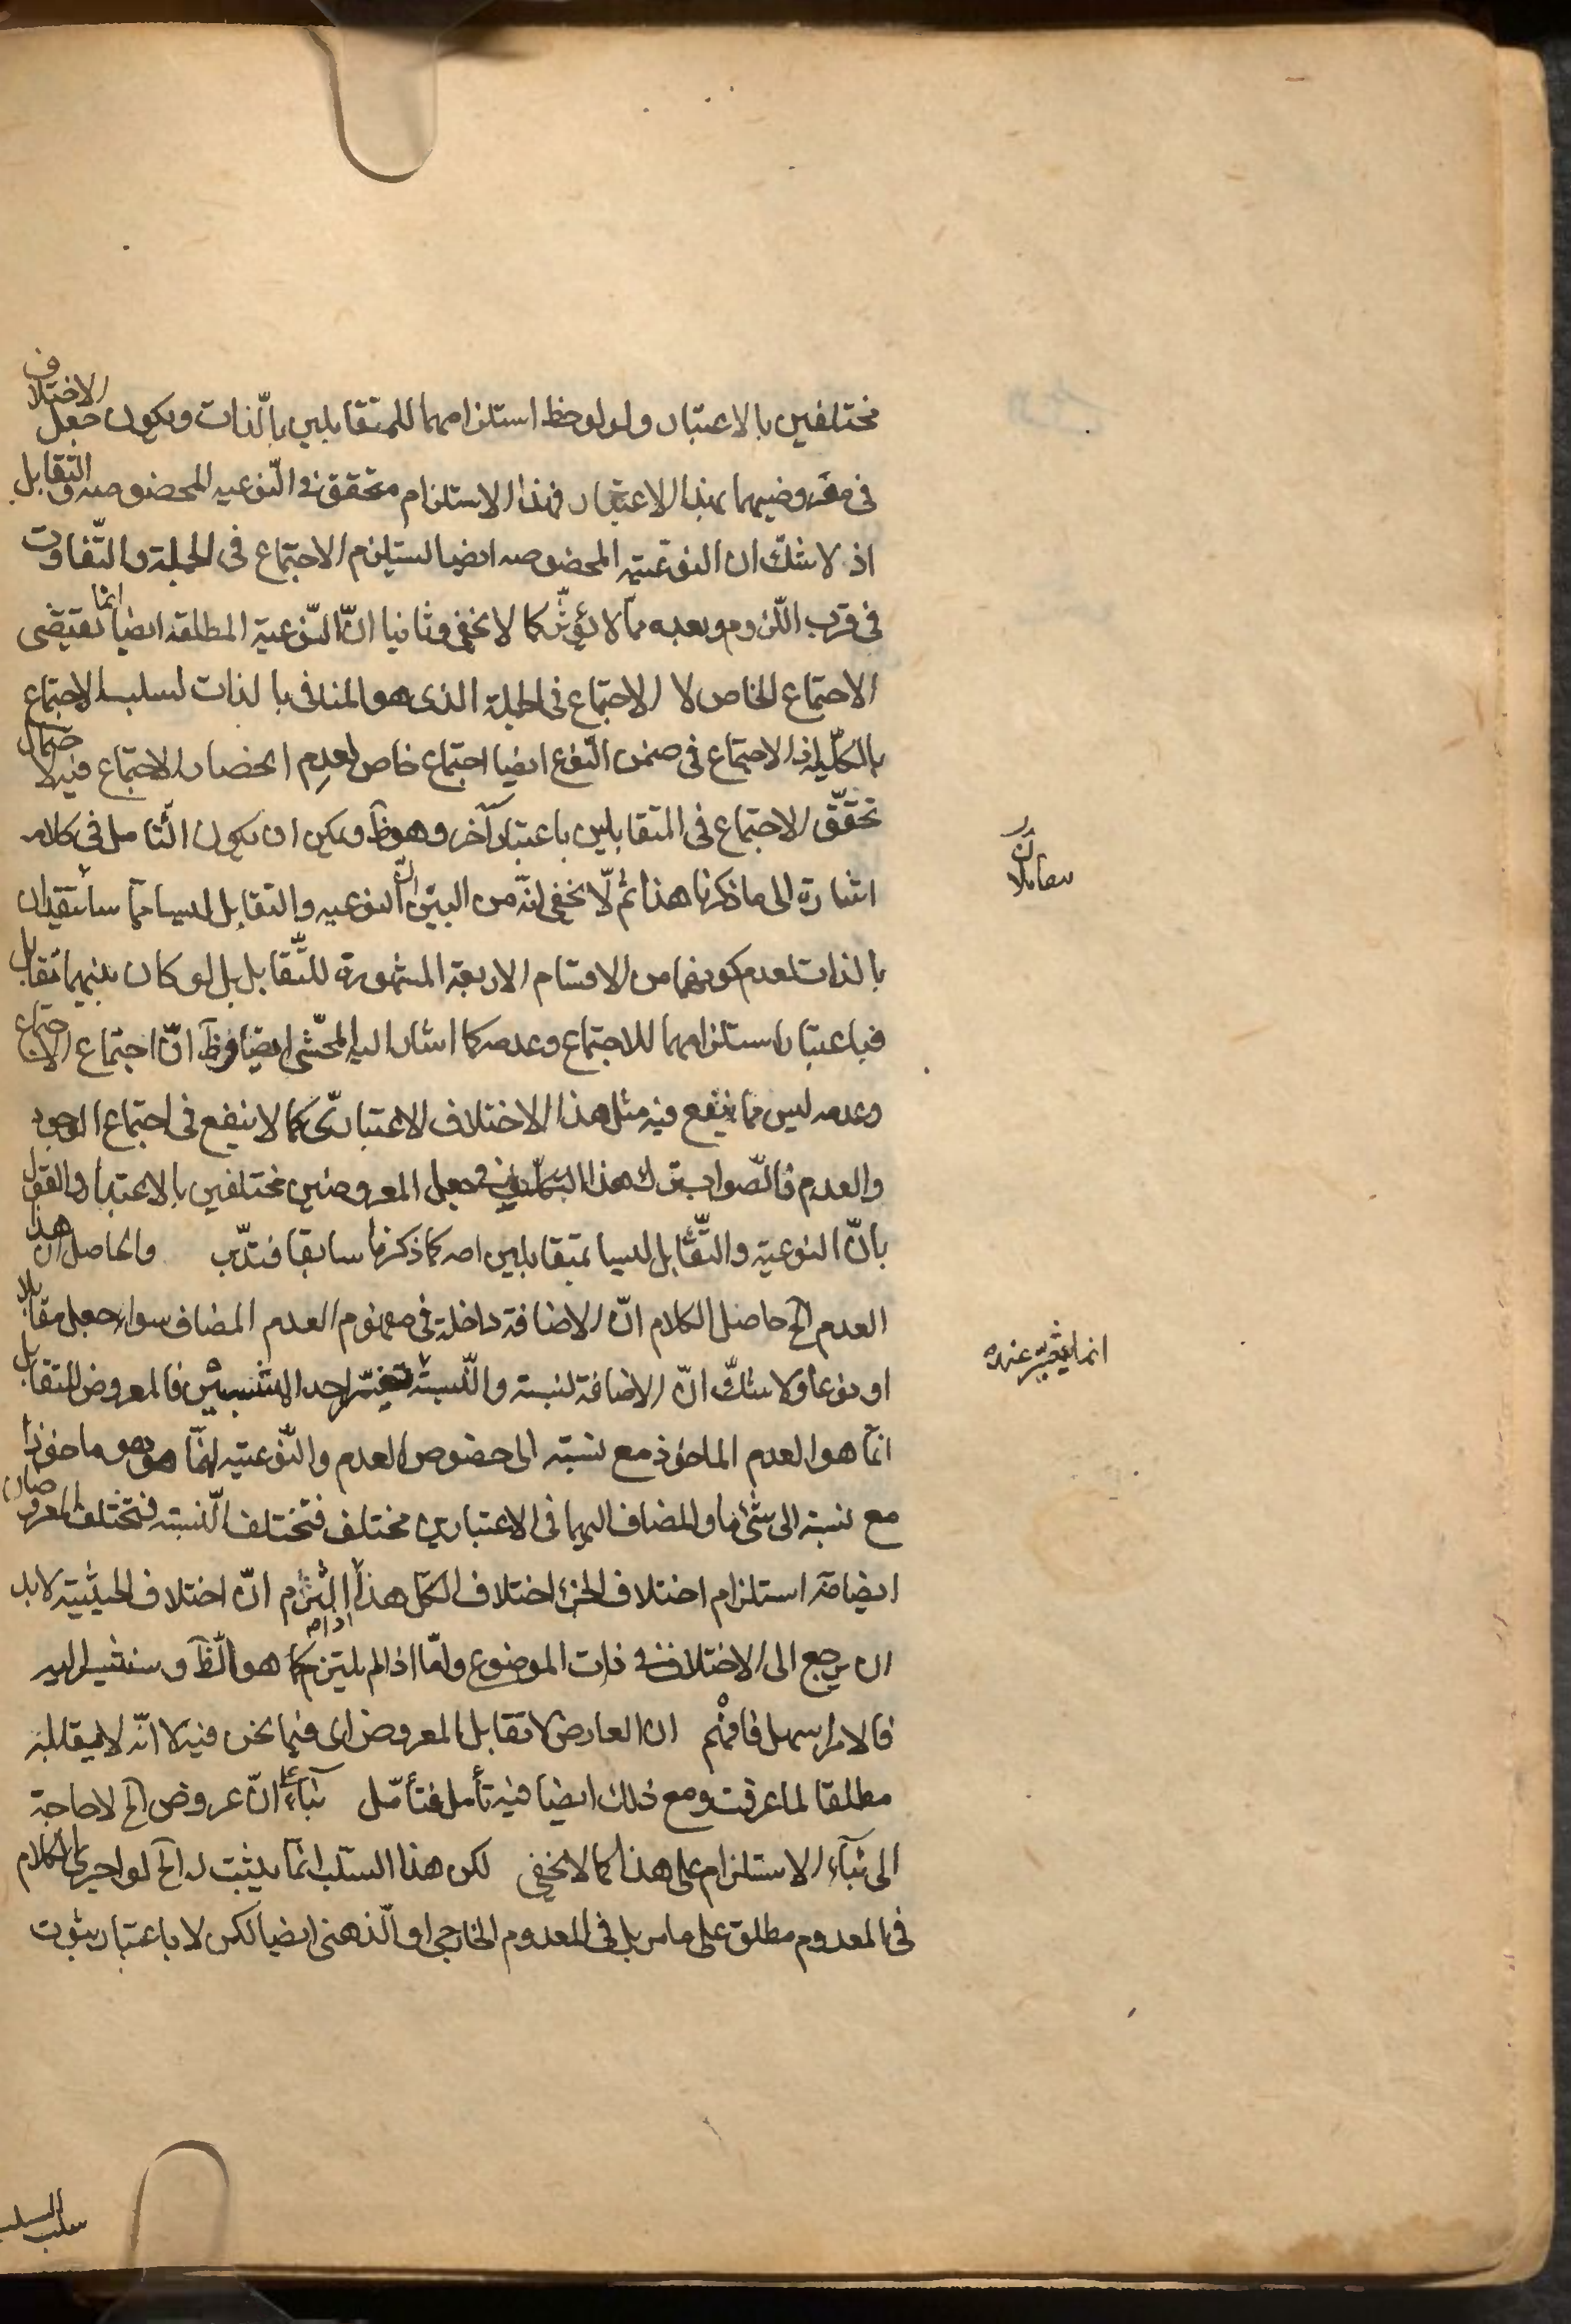 مختلفين بالاعتبار ولو لوحظ استلزامهما للمتقابلين بالذات ويكون جعل الاختلاف
في معروضيهما بهذا الاعتبار فهذا الاستلزام متحقق في النوعيه المخصوصه والتقابل
اذ لا شكّ ان النوعيّة المخصوصه ايضا يستلزم الاجتماع في الجملة والتّفاوت
في قرب اللّزوم وبعده ممّا لا يؤثّر كما لا يخفى وثانيا انّ النّوعية المطلقة ايضا انما تقتضى
الاجتماع الخاص لا الاجتماع في الجملة الذى هو المنافى بالذات لسلب الاجتماع
بالكلّية اذ الاجتماع في ضمن النّوع ايضا اجتماع خاص لعدم انحصار الاجتماع فيه لاحتمال
تحقّق الاجتماع في المتقابلين باعتبار آخر وهو ظ ويمكن ان يكون التّامل في كلامه
اشارة الى ما ذكرنا هذا ثم لا يخفى انّه من البيّن انّ النوعيه والتقابل ليسا ممّا
بالذات لعدم كونهما من الاقسام الاربعة المشهورة للتّقابل بل لو كان بينهما تقابل
فباعتبار استلزامهما للاجتماع وعدمه كما اشار اليه المحشّى ايضا وظ انّ اجتماع الاجتماع
وعدمه ليس مما ينفع فيه مثل هذا الاختلاف الاعتبارىّ كما لا ينفع في اجتماع الوجود
والعدم فالصّواب ترك هذا التكلّف في جعل المعروضين مختلفين بالاعتبار والقول
بانّ النوعية والتّقابل ليسا بمتقابلين اصه كما ذكرنا سابقا فتدبّر والحاصل ان هذا
العدم الخ حاصل الكلام انّ الاضافة داخلة في مفهوم العدم المضاف سواء جعل مقابلا
او نوعا ولا شكّ انّ الاضافة نسبة والنّسبة تغيّر احد المنتسبين فالمعروض للتقابل
انّما هو العدم الماخوذ مع نسبته الى خصوص العدم والنّوعيّة انّما هو ماخوذا
مع نسبة الى شئ ما والمضاف اليهما في الاعتبارين مختلف فتختلف النّسبة فتختلف المعروضان
ايضا استلزام اختلاف الجزء اختلاف الكلّ هذا اذا التزم انّ اختلاف الحيثيّة لا بد
ان يرجع الى الاختلاف في ذات الموضوع وامّا اذا لم يلتزم كما هو الظّ وسنشير اليه
فالامر سهل فافهم ان العارض لا تقابل المعروض اى فيما نحن فيه لا انّه لا يقابله
مطلقا لما عرفت ومع ذلك ايضا فيه تأمل فتأمّل بناءً على انّ عروض الخ لا حاجة
الى بناء الاستلزام على هذا كما لا يخفى لكن هذا السلب انّما يثبت له الخ لو اجرى الكلام
في المعدوم مطلق على ما مر بل في المعدوم الخارجى او الذهنى ايضا لكن لا باعتبار ثبوت
انما عنده
سلب السلب